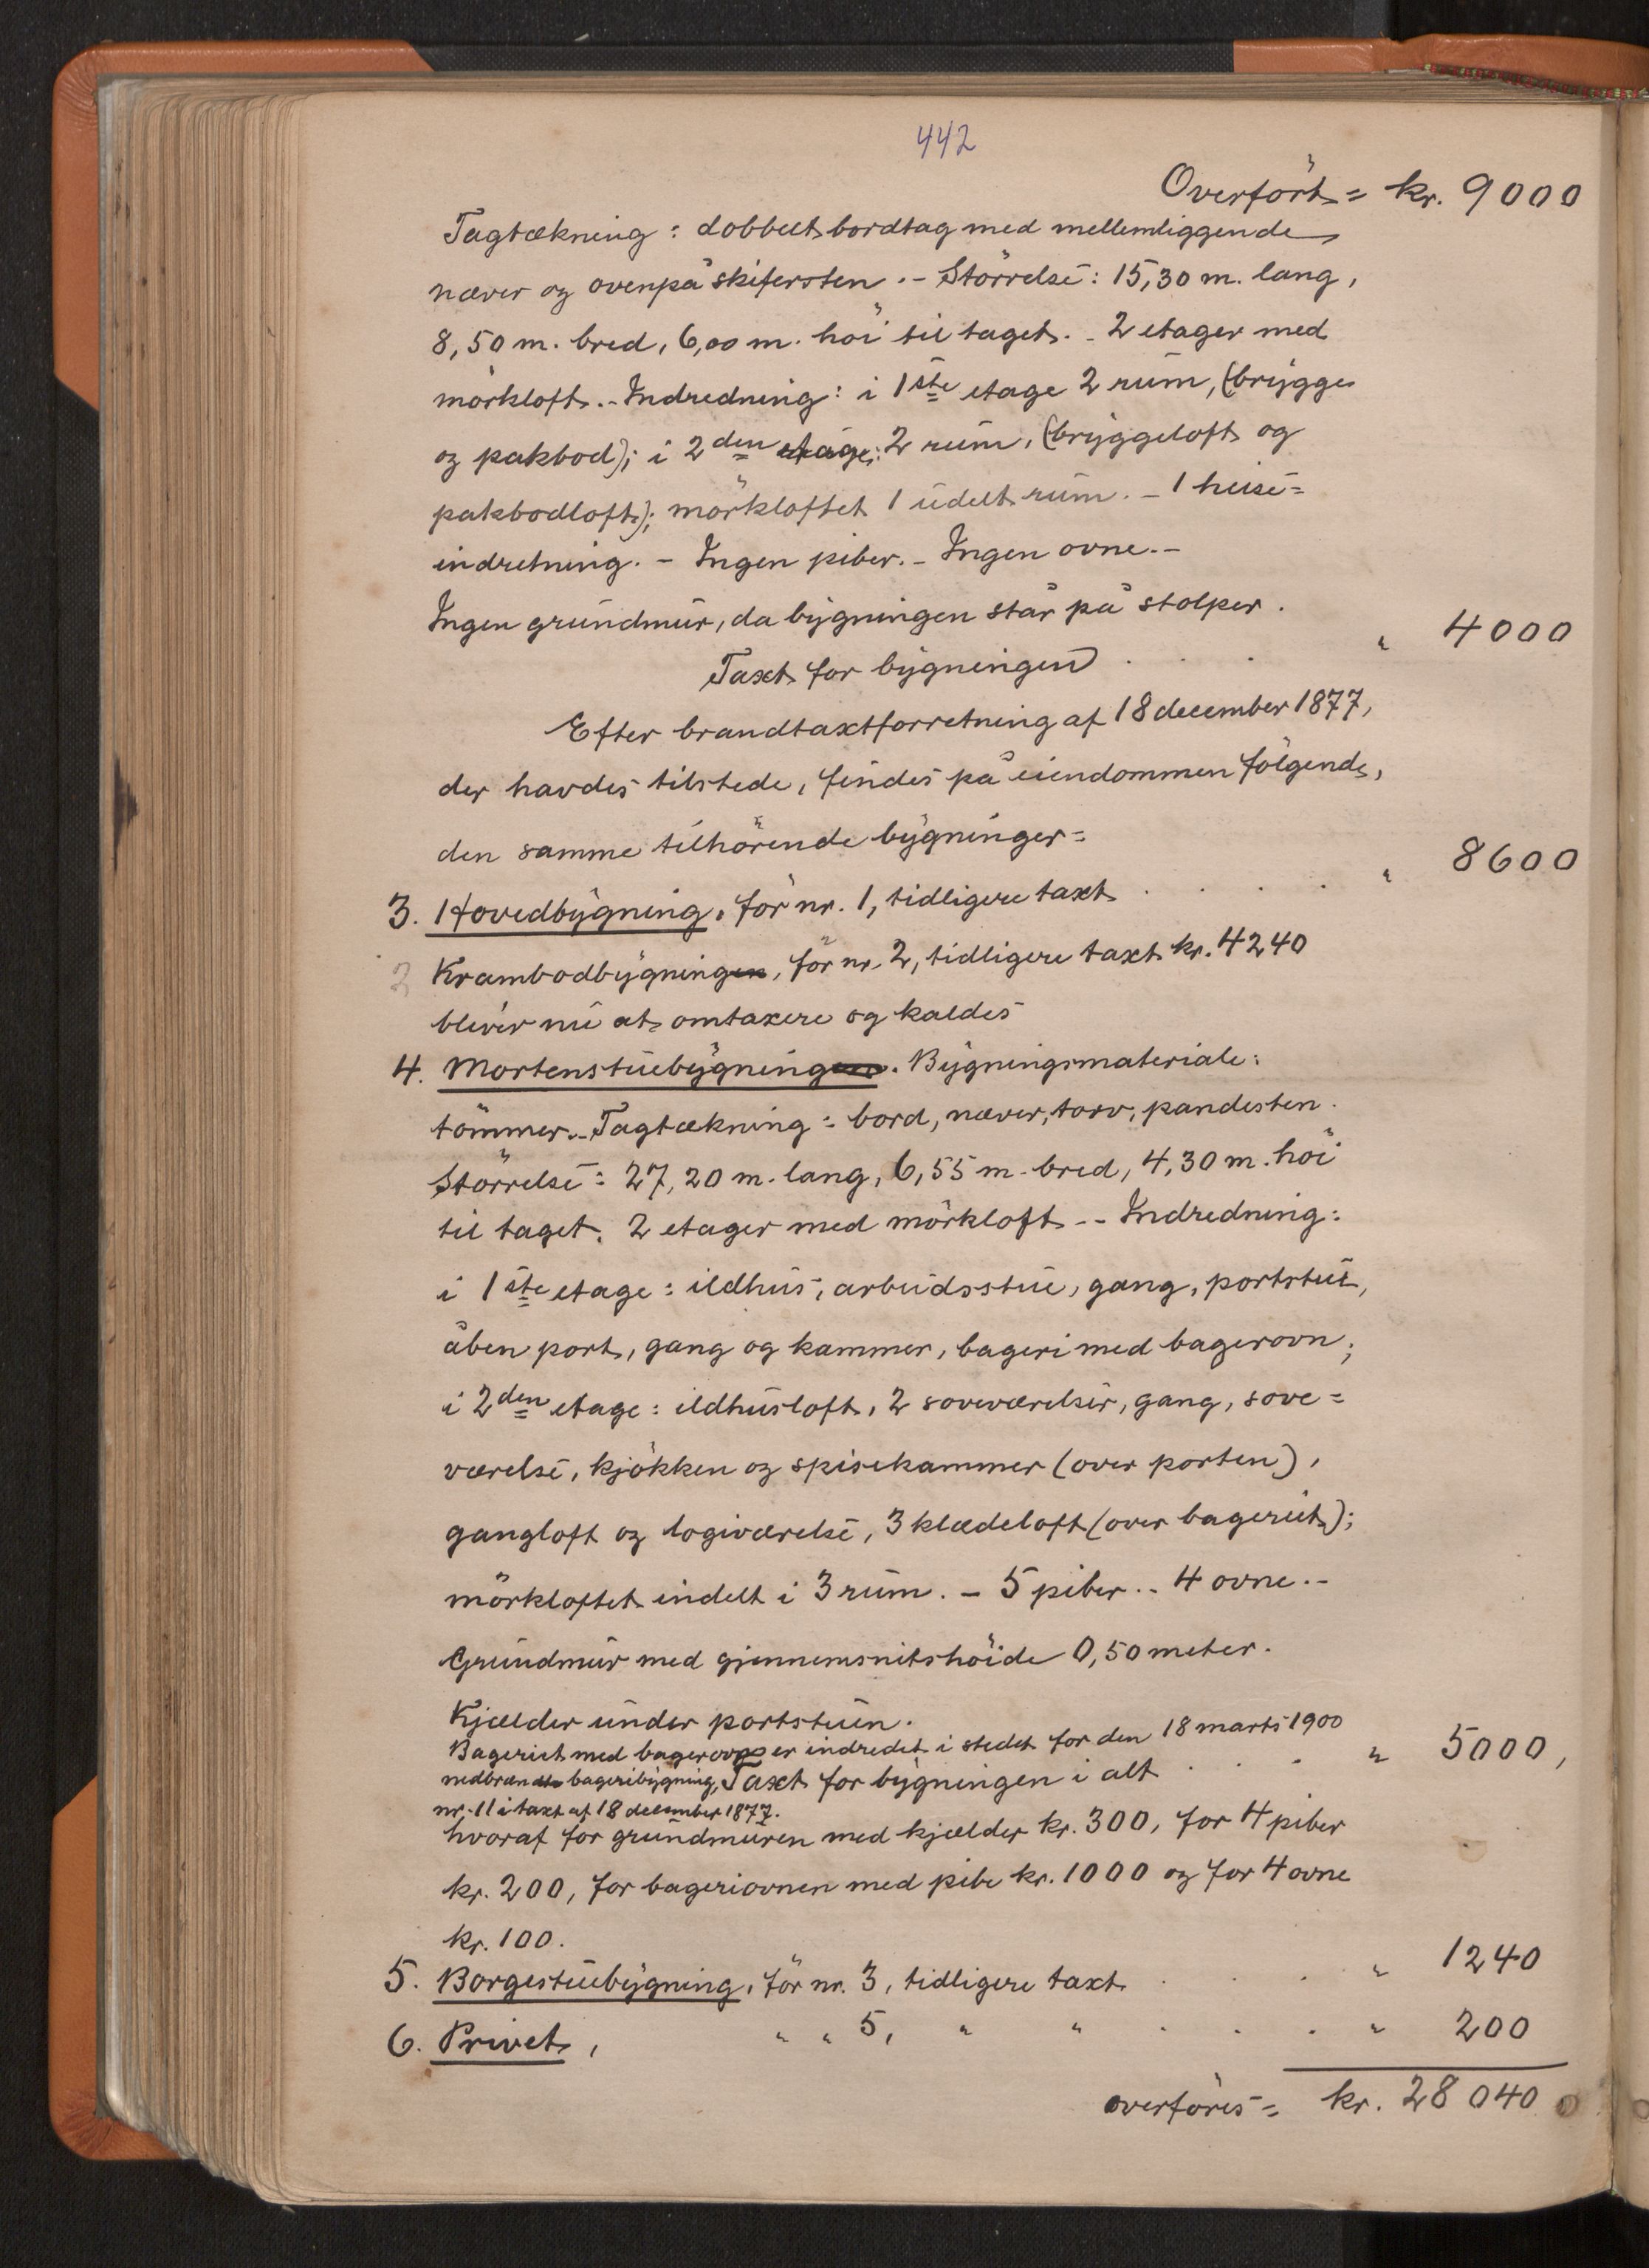 442
Overført = kr. 9000
Tagtækning: dobbelt bordtag med mellemliggende
næver og ovenpå skifersten. - Störrelse: 15,30 m. lang,
8,50 m. bred, 6,00 m. höi til taget. - 2 etager med
mörkloft. - Indredning: i 1ste etage 2 rum, (brygge
og pakbod); i 2den etage: 2 rum, (bryggeloft og
pakbodloft); mörkloftet 1 udelt rum. - 1 heise=
indretning. - Ingen piber. - Ingen ovne. -
Ingen grundmur, da bygningen står på stolper.
Taxt for bygningen . . . " 4000
Efter brandtaxtforretning af 18 december 1877,
der havdes tilstede, findes på eiendommen fölgende,
den samme tilhörende bygninger =
3. Hovedbygning, för nr. 1, tidligere taxt . . . " 8600
2 Krambodbygningen, för nr. 2, tidligere taxt kr. 4240
bliver nu at omtaxere og kaldes
4. Mortenstuebygningen. Bygningsmateriale:
tömmer. - Tagtækning: bord, næver, torv, pandesten.
Störrelse: 27,20 m. lang, 6,55 m. bred, 4,30 m. höi
til taget. 2 etager med mörkloft. - Indredning:
i 1ste etage: ildhus, arbeidsstue, gang, portstue,
åben port, gang og kammer, bageri med bagerovn;
i 2den etage: ildhusloft, 2 soveværelser, gang, sove=
værelse, kjökken og spisekammer (over porten),
gangloft og logiværelse, 3 klædeloft (over bageriet);
mörkloftet indelt i 3 rum. - 5 piber. - 4 ovne. -
Grundmur med gjennemsnitshöide 0,50 meter.
Kjælder under portstuen.
Bageriet med bagerovn er indredet i stedet for den 18 marts 1900
nedbrændte bageribygning, Taxt for bygningen i alt . . . " 5000,
nr. 11 i taxt af 18 december 1877.
hvoraf for grundmuren med kjælder kr. 300, for 4 piber
kr. 200, for bageriovnen med pibe kr. 1000 og for 4 ovne
kr. 100.
5. Borgestuebygning, för nr. 3, tidligere taxt . . . " 1240
6. Privet, " " 5, " " . . . " 200
overföres = kr. 28 040